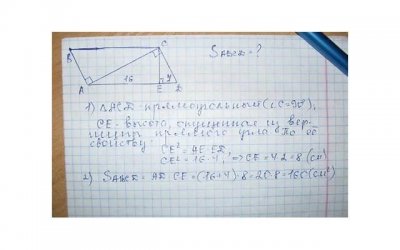 B
C
S_ABCD = ?
A
16
E
4
D
1) △ACD - прямоугольный (∠C=90°),
CE - высота, опущенная из вер-
шины прямого угла. По её
свойству:
CE² = AE·ED,
CE² = 16·4, => CE = 4·2 = 8 (см)
2) S_ABCD = AD·CE = (16+4)·8 = 20·8 = 160 (см²)